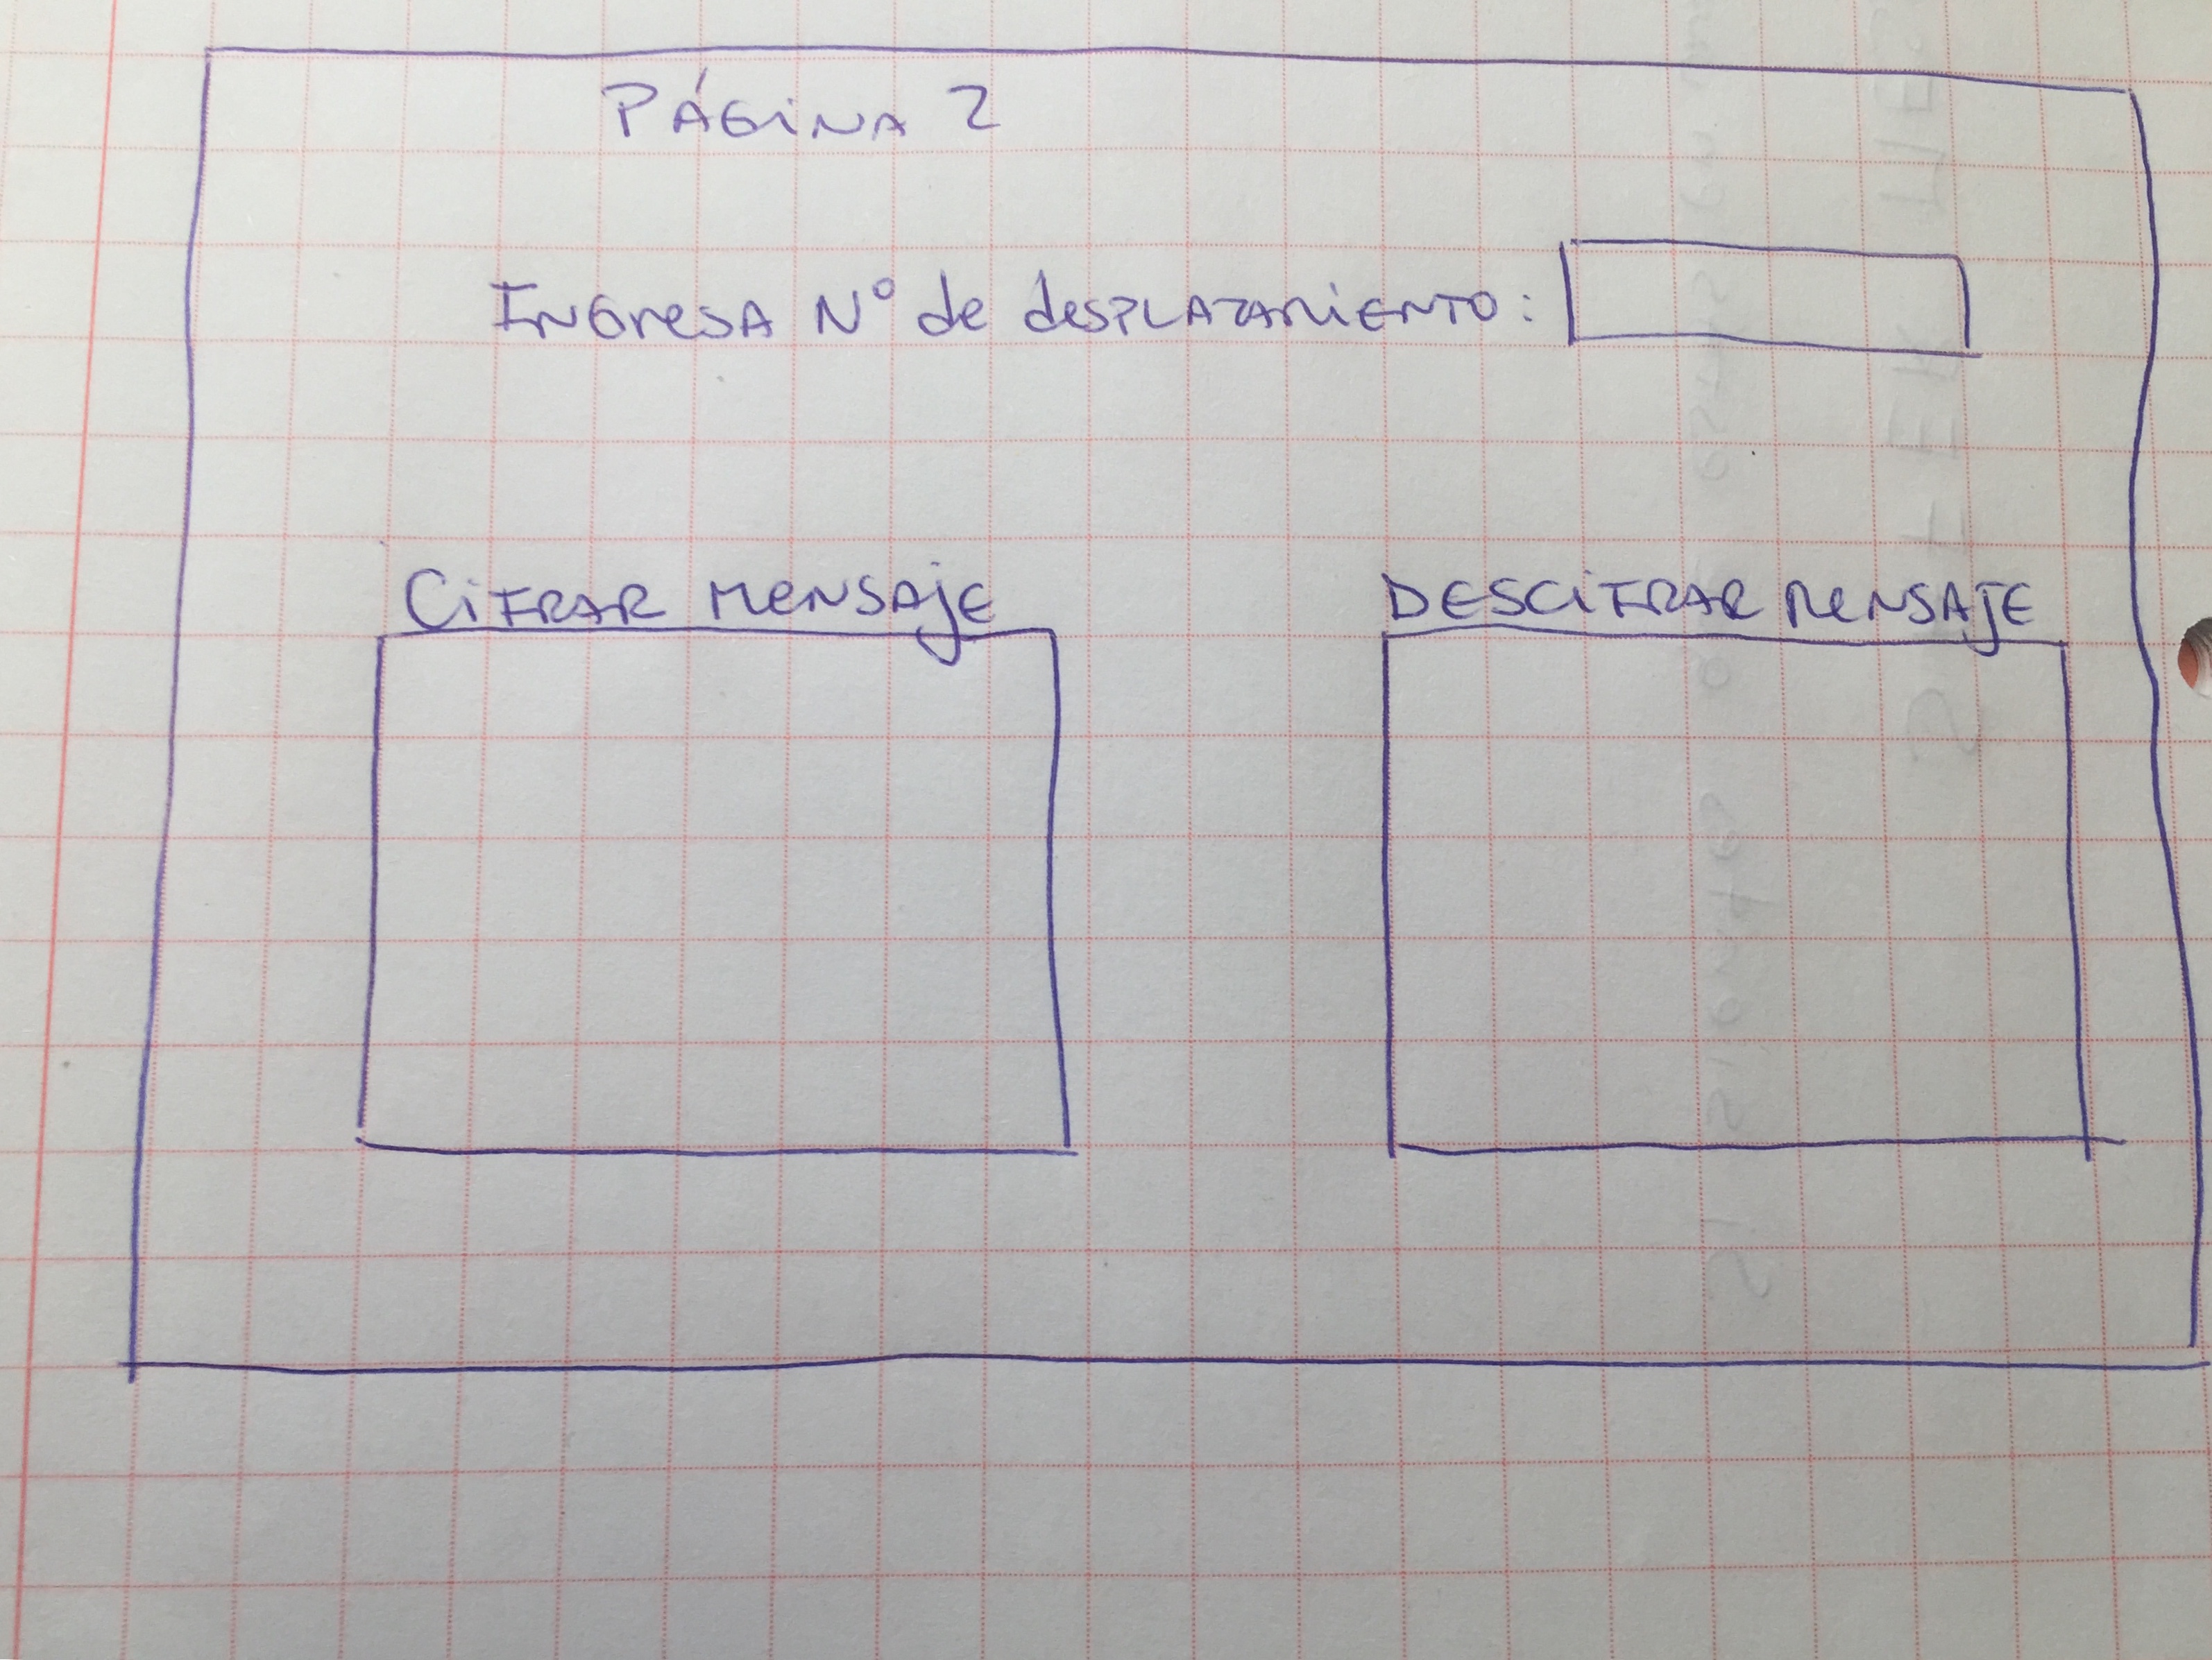 PÁGiNA 2
INGresA Nº de desPLAZAMiENTO:
CiFRAR MeNSAjE
DESCiFRAR MeNSAJE